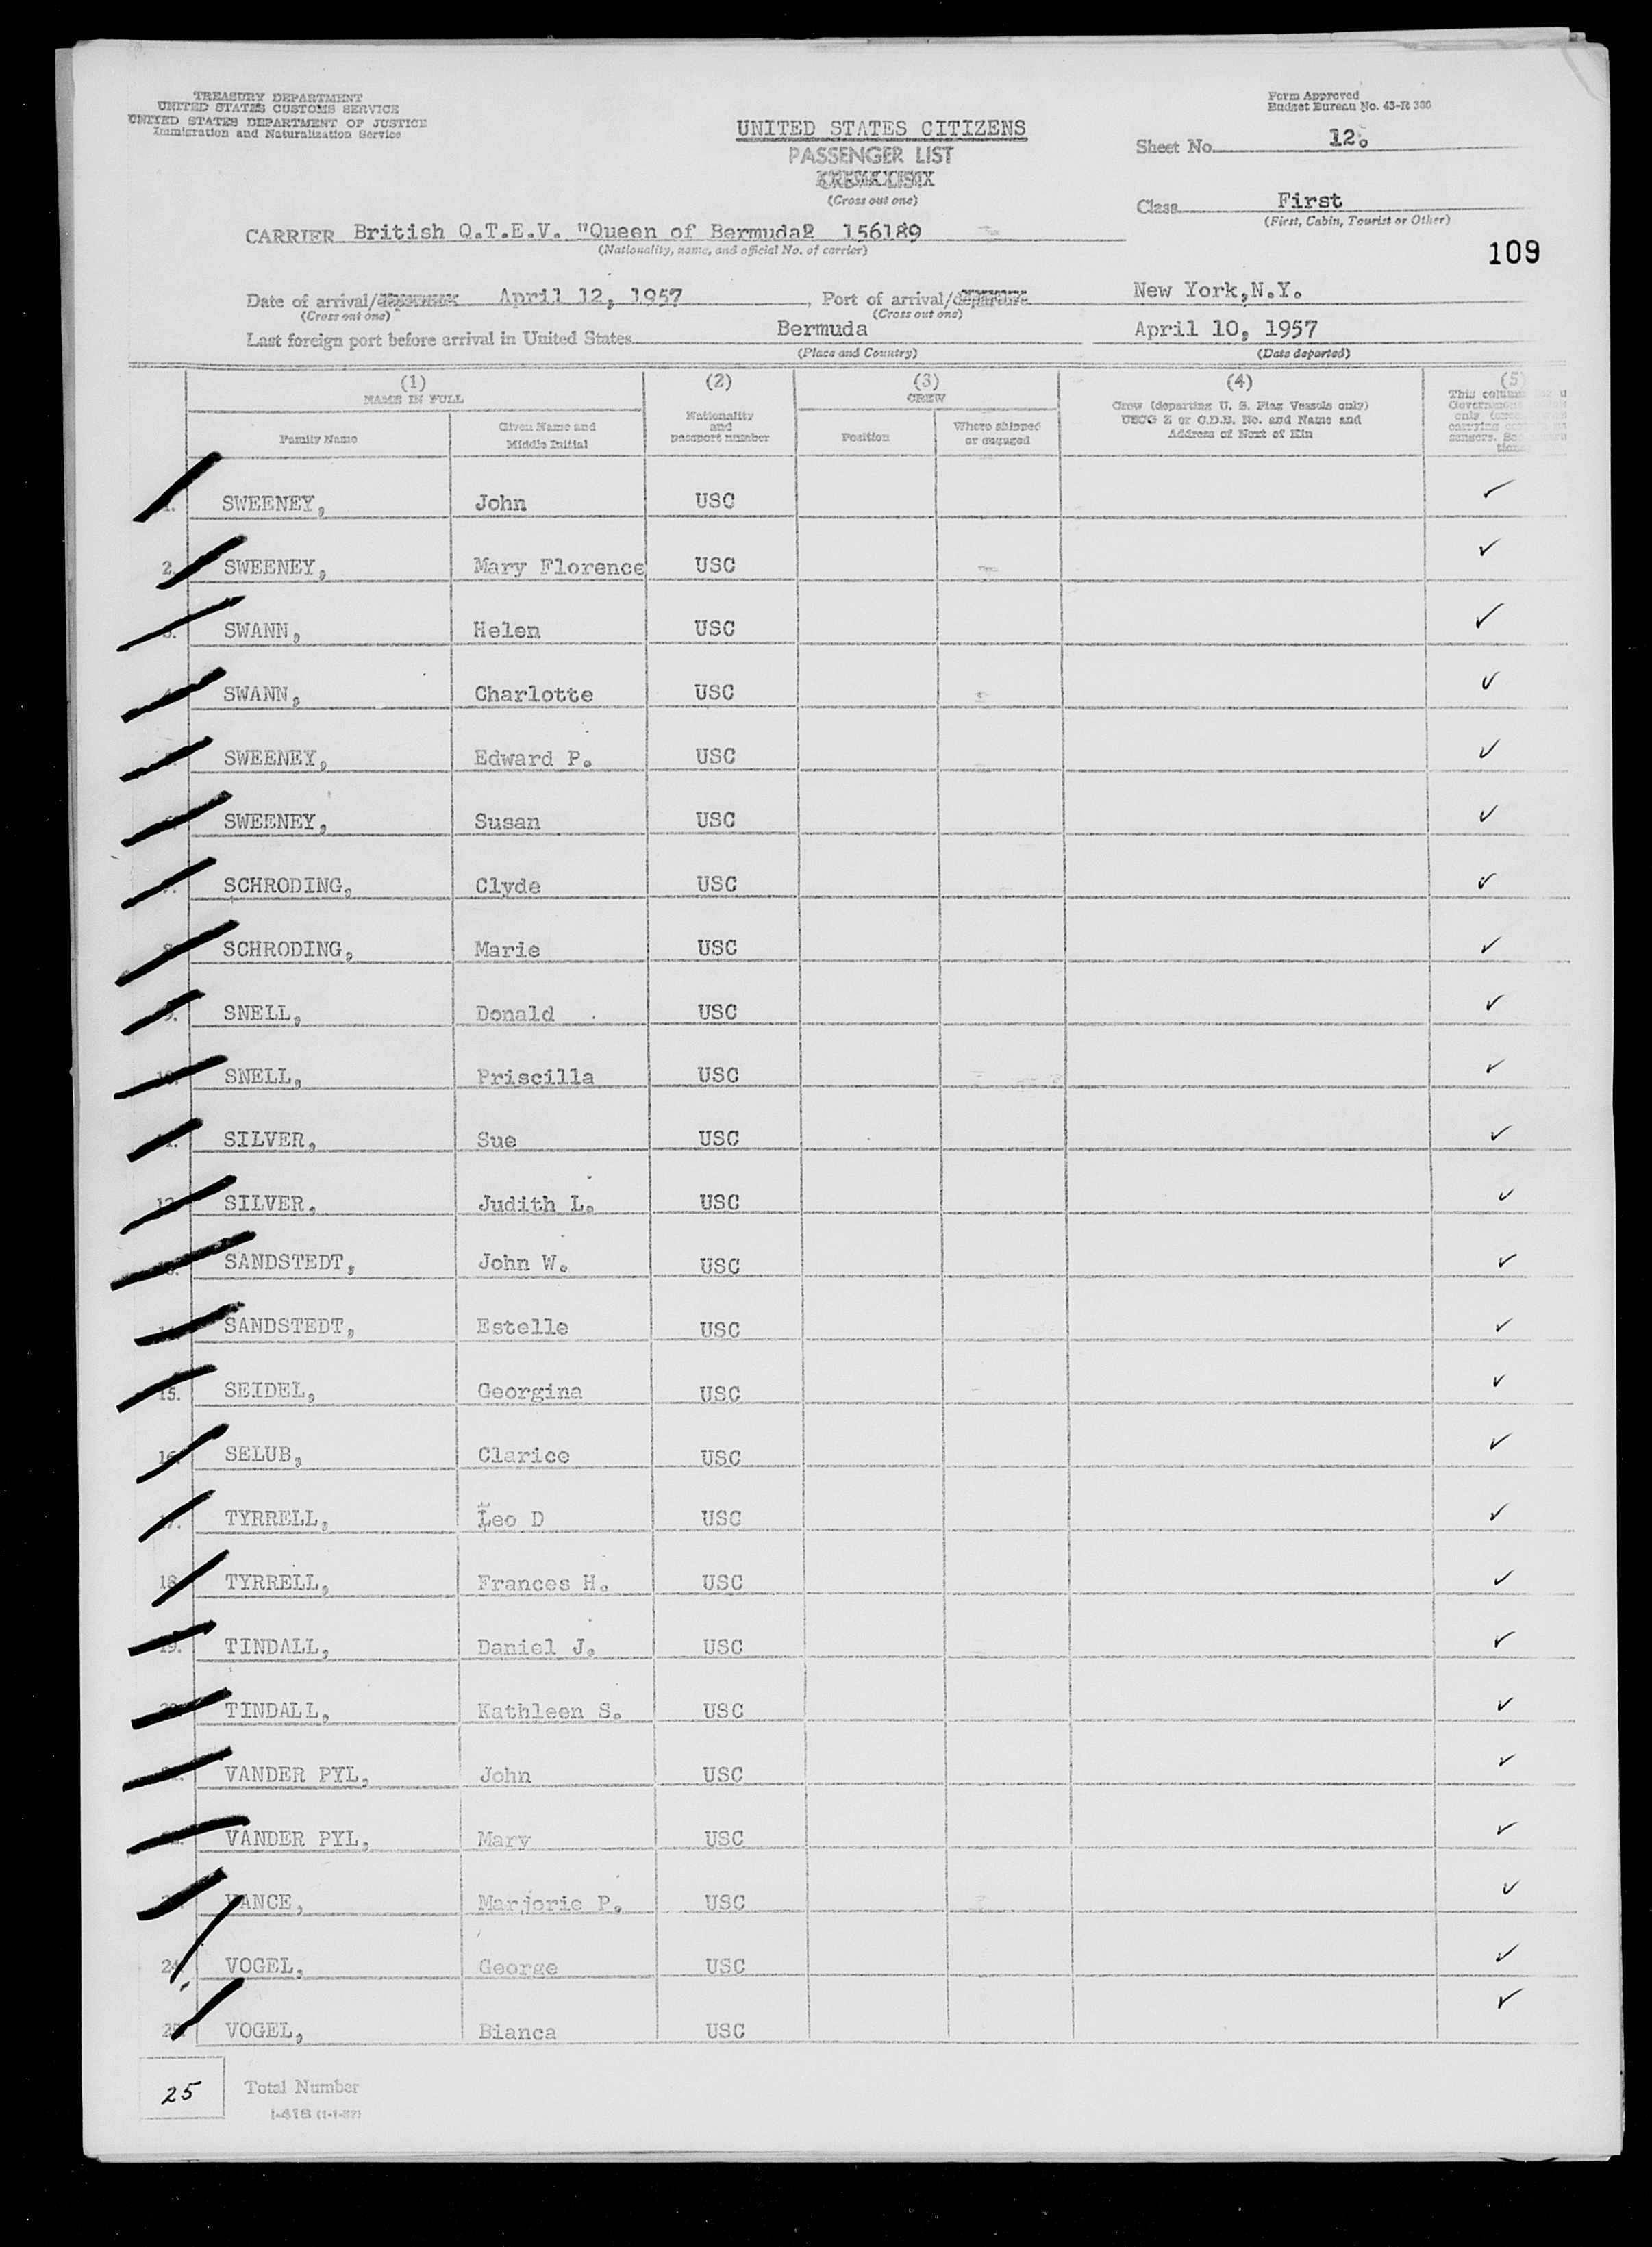 TREASURY DEPARTMENT
UNITED STATES CUSTOMS SERVICE
UNITED STATES DEPARTMENT OF JUSTICE
Immigration and Naturalization Service
Form Approved
Budget Bureau No. 43-R 380
UNITED STATES CITIZENS
PASSENGER LIST
CREW LIST
(Cross out one)
Sheet No. 12.
Class First
(First, Cabin, Tourist or Other)
CARRIER British Q.T.E.V. "Queen of Bermuda2 156189
(Nationality, name, and official No. of carrier)
109
Date of arrival/departure April 12, 1957, Port of arrival/departure New York,N.Y.
(Cross out one) (Cross out one)
Last foreign port before arrival in United States Bermuda April 10, 1957
(Place and Country) (Date departed)
(1) (2) (3) (4) (5)
NAME IN FULL CREW
Family Name Given Name and Middle Initial Nationality and passport number Position Where shipped or engaged Crew (departing U. S. Flag Vessels only) USCG Z or C.D.B. No. and Name and Address of Next of Kin This column only
1. SWEENEY, John USC ✓
2. SWEENEY, Mary Florence USC ✓
3. SWANN, Helen USC ✓
4. SWANN, Charlotte USC ✓
5. SWEENEY, Edward P. USC ✓
6. SWEENEY, Susan USC ✓
7. SCHRODING, Clyde USC ✓
8. SCHRODING, Marie USC ✓
9. SNELL, Donald USC ✓
10. SNELL, Priscilla USC ✓
11. SILVER, Sue USC ✓
12. SILVER. Judith L. USC ✓
13. SANDSTEDT, John W. USC ✓
14. SANDSTEDT, Estelle USC ✓
15. SEIDEL, Georgina USC ✓
16. SELUB, Clarice USC ✓
17. TYRRELL, Leo D USC ✓
18. TYRRELL, Frances H. USC ✓
19. TINDALL, Daniel J. USC ✓
20. TINDALL, Kathleen S. USC ✓
21. VANDER PYL, John USC ✓
22. VANDER PYL, Mary USC ✓
23. VANCE, Marjorie P. USC ✓
24. VOGEL, George USC ✓
25. VOGEL, Bianca USC ✓
25 Total Number
I-418 (1-1-57)